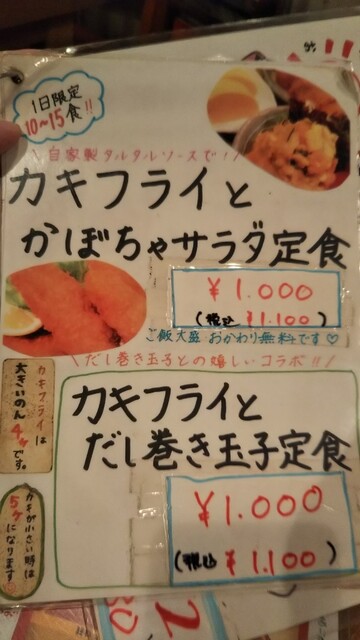 1日限定
10~15食!!
\自家製タルタルソースで!/
カキフライと
かぼちゃサラダ定食
¥1.000
(税込 ¥1.100)
ご飯大盛 おかわり無料です♡
\だし巻き玉子との嬉しいコラボ!!/
カキフライは
大きいのん
4ヶです。
カキフライと
だし巻き玉子定食
¥1.000
(税込 ¥1.100)
カキが小さい時は
5ヶ
になります